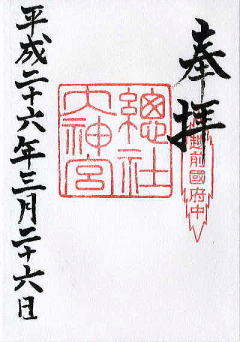 奉拝
越前國府中
總社
大神宮
平成二十六年三月二十六日